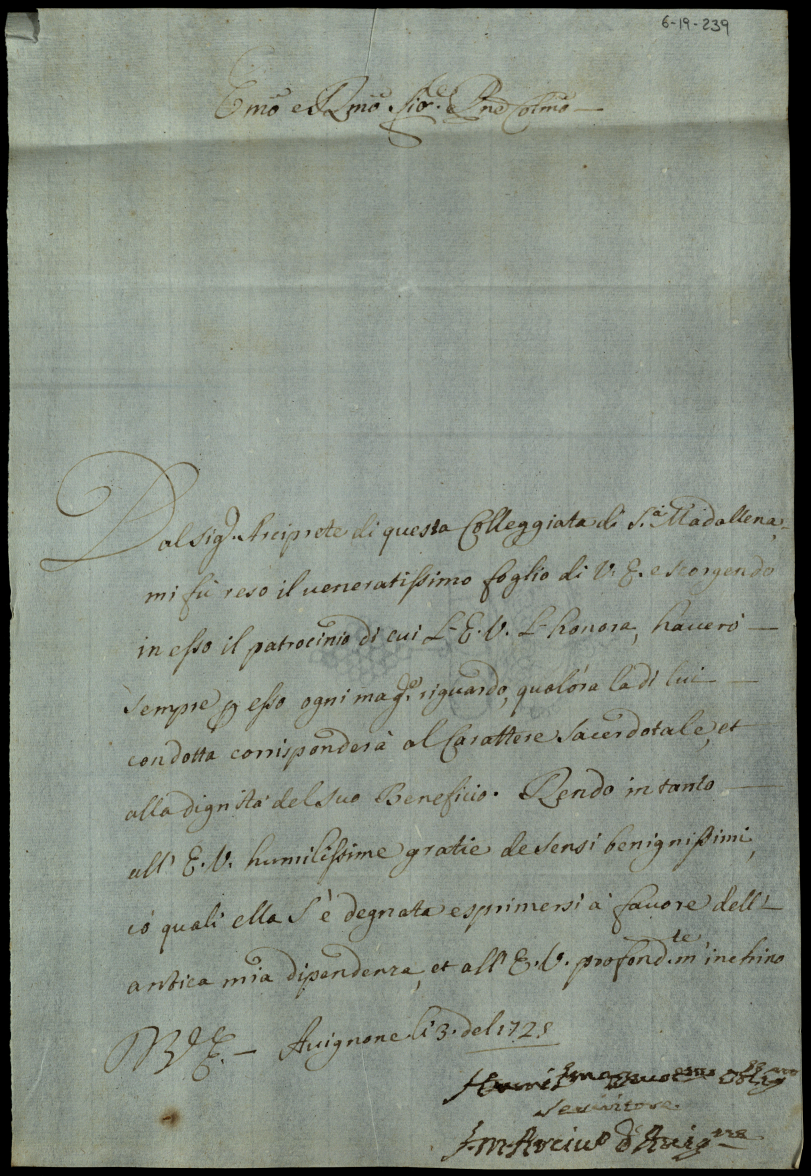 6-19-239
Emo e Rmo Sior. e Pne Colmo
Dal Sigr. Arciprete di questa Colleggiata di S.a Madallena,
mi fù reso il veneratissimo foglio di V. E. e scorgendo
in esso il patrocinio di cui L'E.V. L'honora, haverò
sempre p esso ogni magr. riguardo, qualora la di lui
condotta corrisponderà al Carattere Sacerdotale, et
alla dignità del suo Beneficio. Rendo in tanto
all' E. V. humilissime gratie de sensi benignissimi,
có quali ella S'è degnata esprimersi à favore dell'
antica mia dipendenza, et all' E. V. profond.te m'inchino
Avignone li 3. del 1721
Servitore
d'Avigne